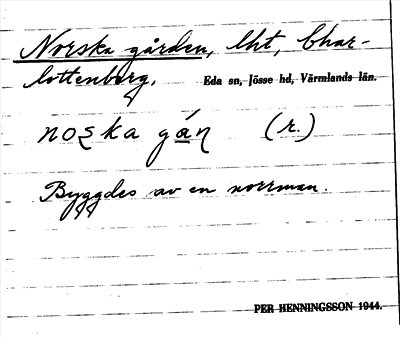 Norska gården, lht, Char-
lottenberg, Eda sn, Jösse hd, Värmlands län.
noʂka gá̱ɳ (r.)
Byggdes av en norrman.
PER HENNINGSSON 1944.